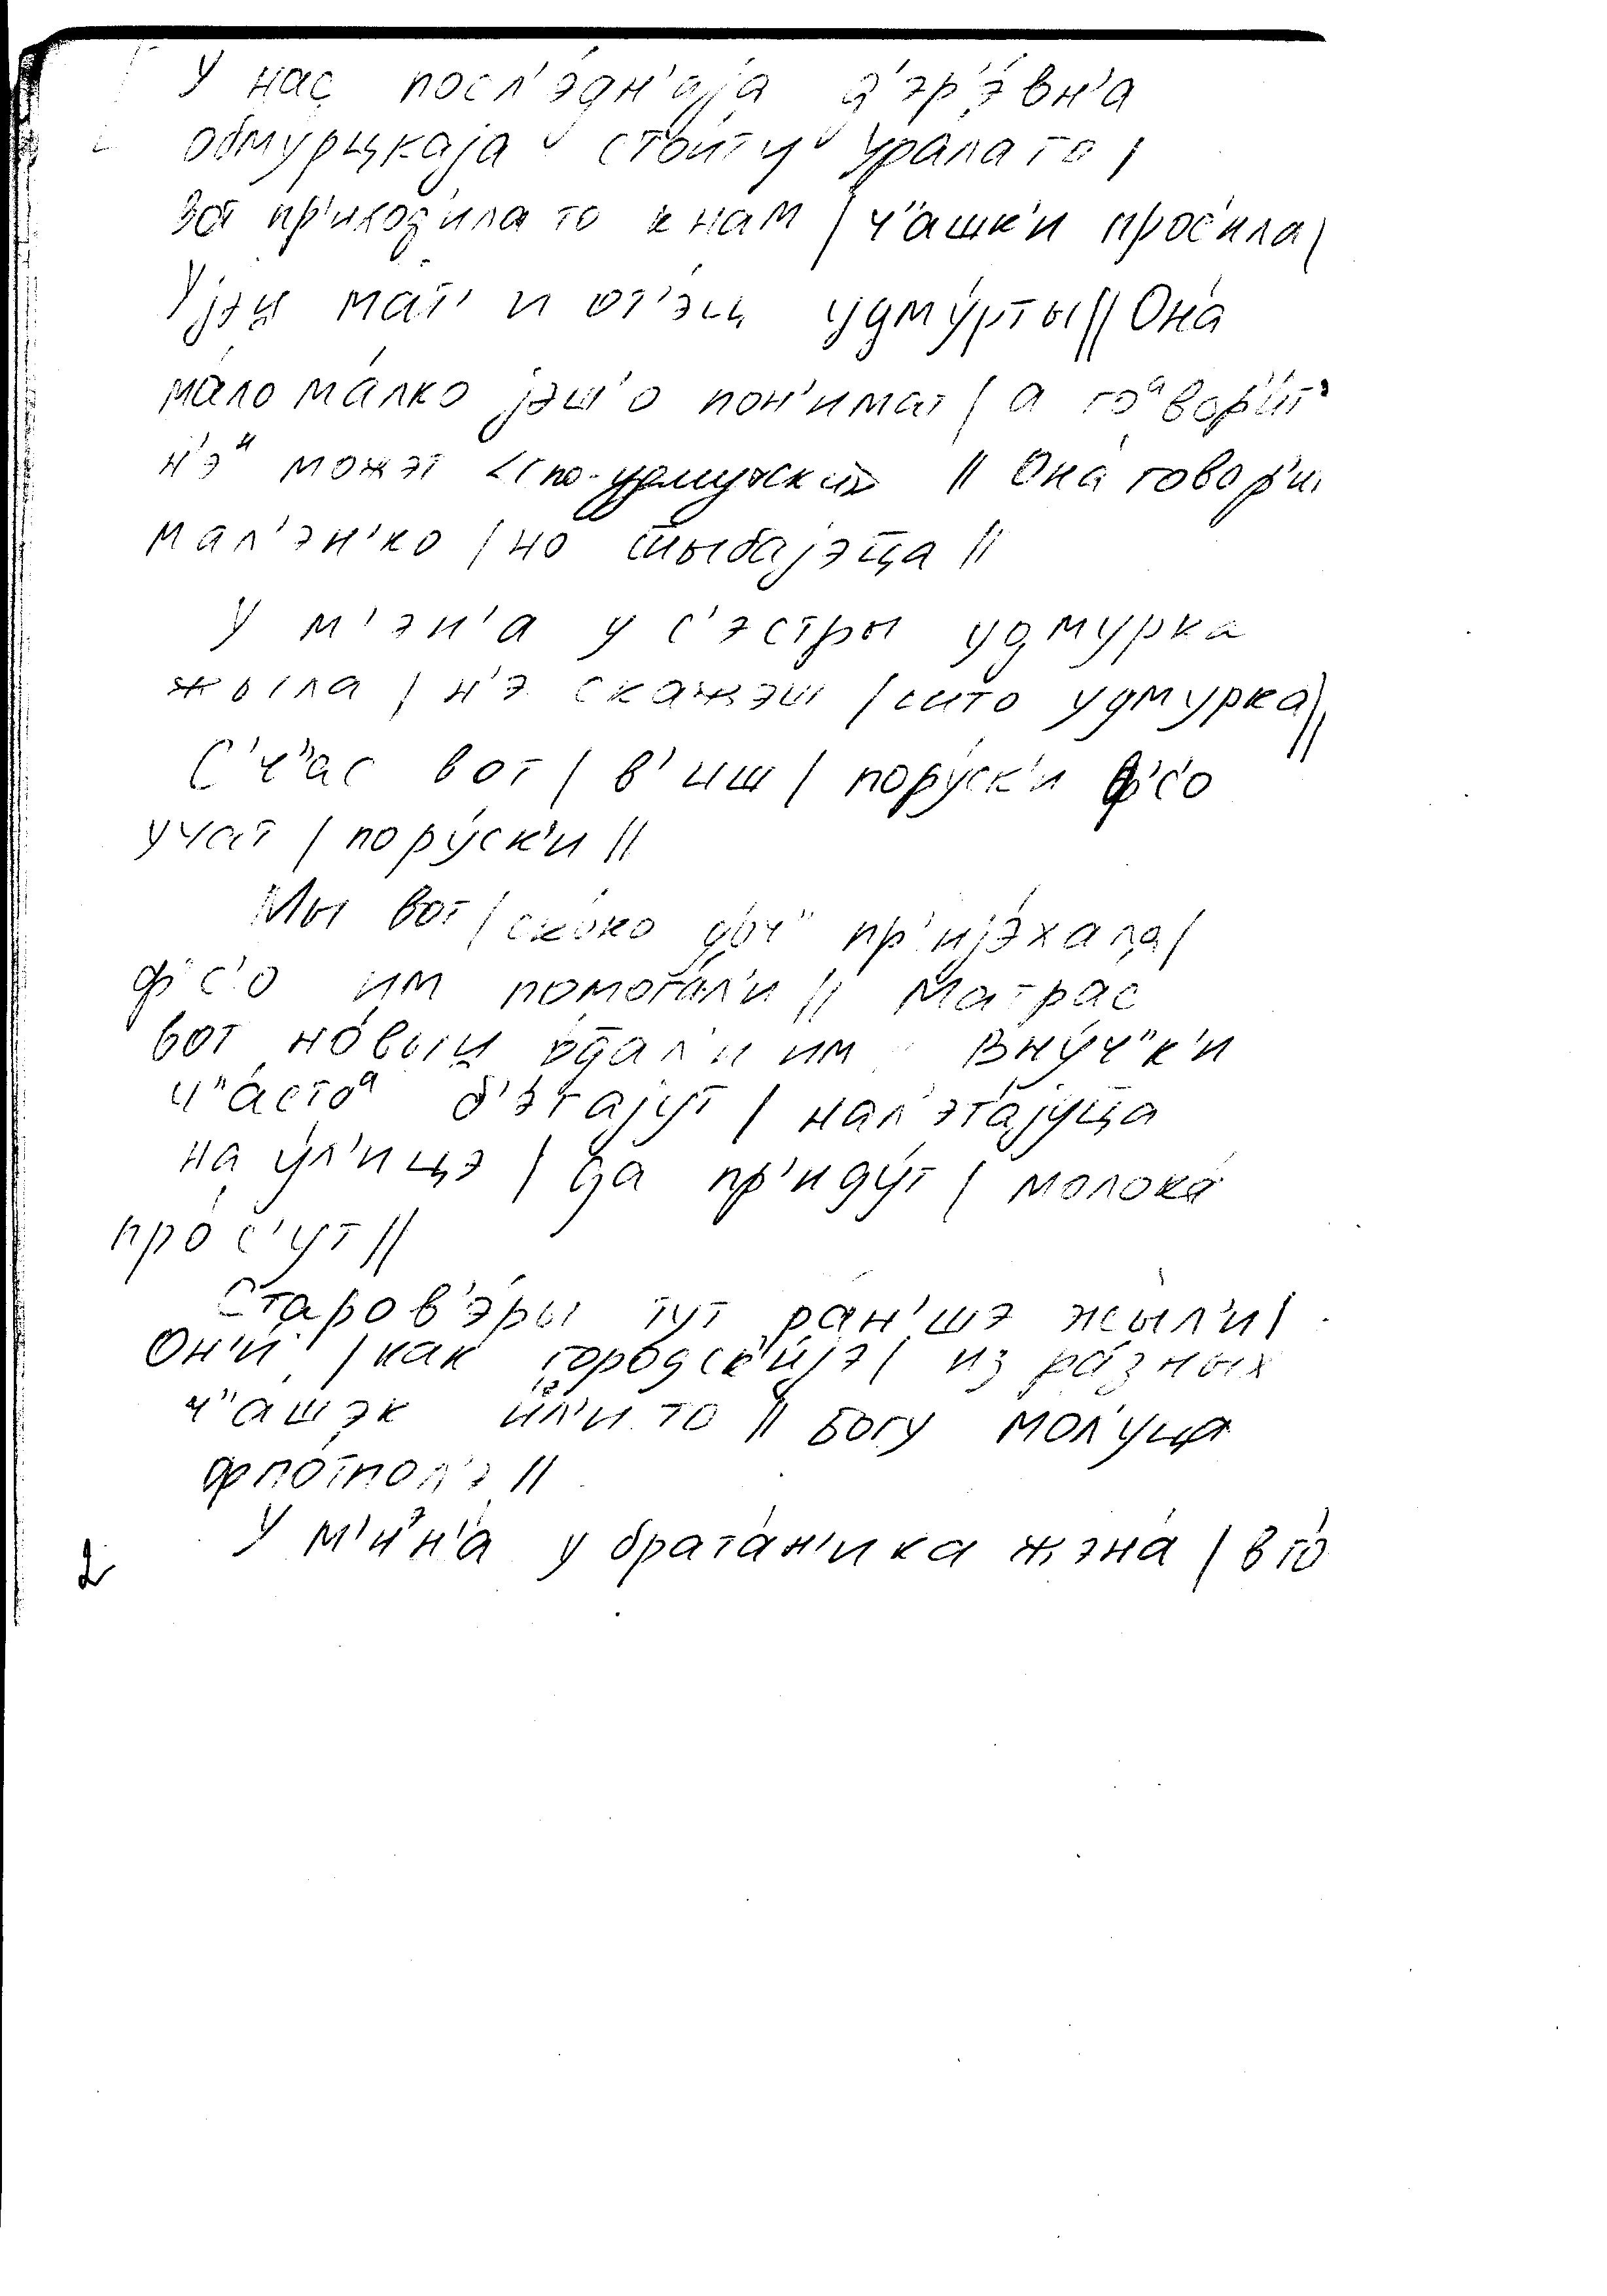 У нас посл'э́дн'аjа д'эр'э́вн'а
обму́рцкаjа стои́т у Урала то /
вот пр'иход'ила то к нам / ч"ашк'и прос'ила /
У jэй мат' и от'эц удму́рты // Она́
ма́ло ма́лко jэш'о пон'имат / а гоᵃвор'и́т'
н'эᴻ можэт <<по-удмурчски>> // Она́ говор'и́т
мал'эн'ко / но шыбаjэца //
У м'эн'а у с'эстры удмурка
жыла / н'э скажэш / што удмурка //
С'ч"ас вот / в'иш / пору́ск'и ф'с'о
учат / пору́ск'и //
Мы вот / ско́ко доч" пр'иjэ́хала /
ф'с'о им помога́л'и // Матра́с
вот но́вый одал'и им Вну́ч"к'и
ч"а́стоᵃ б'э́гаjут / нал'эта́jуца
на у́л'ицэ / да пр'иду́т / молока́
про́с'ут //
Старов'э́ры тут ра́н'шэ жы́л'и /
Он'и́ / как городск'и́jэ / из ра́зных
ч"а́шэк йл'и то // Богу мол'уца
фпо́тпол'э //
У м'иᵊн'а́ у брата́н'ика жэна́ / в го́
2